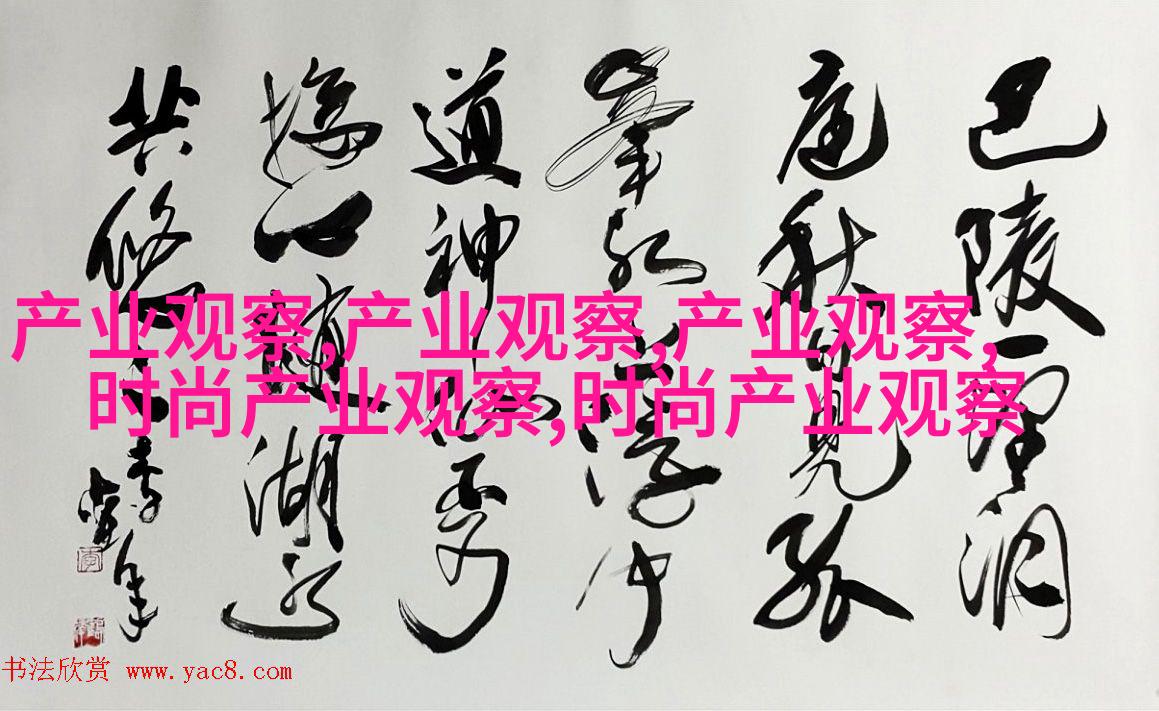 巴陵一望洞
庭秋日見孤
峯水上浮闻
道神仙不可
接心随湖水
共悠悠
产业观察,产业观察,产业观察,
时尚产业观察,时尚产业观察
书法欣赏 www.yac8.com